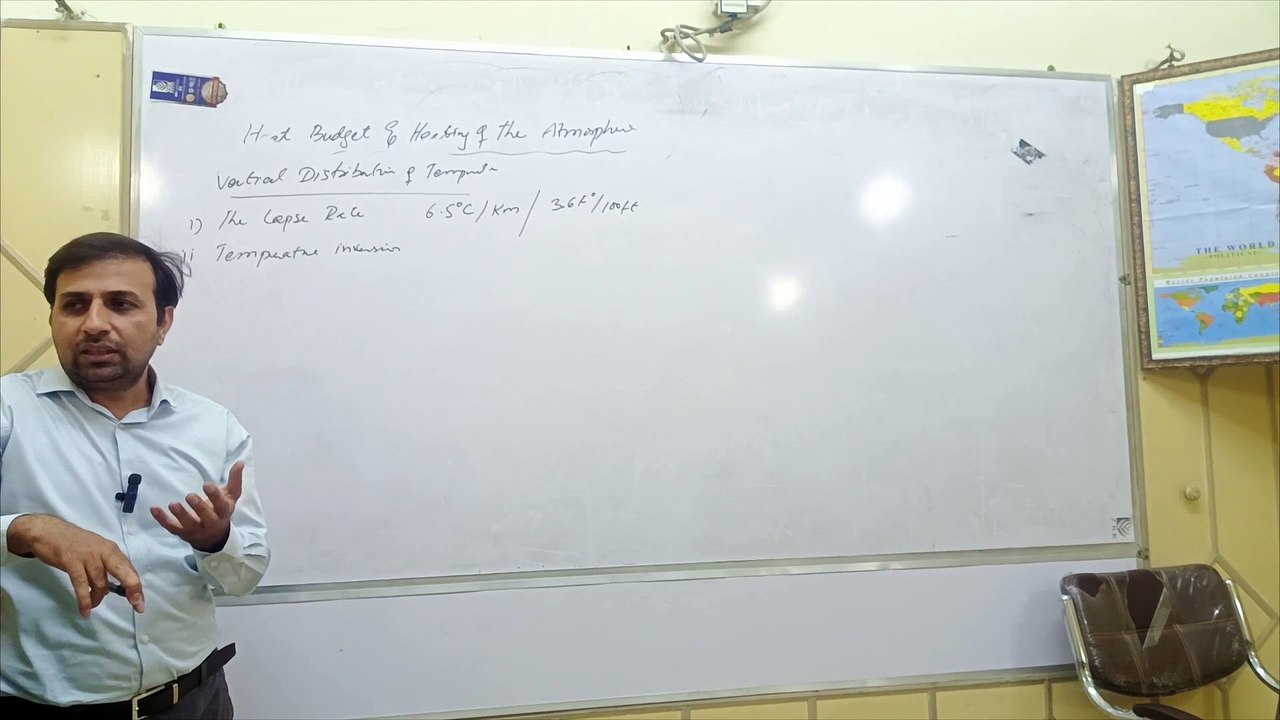 Heat Budget & Heating of the Atmosphere
Vertical Distribution of Temperature
i) The Lapse Rate 6.5°C/Km / 3.6F°/100ft
ii Temperature inversion
THE WORLD
-POLITICAL-